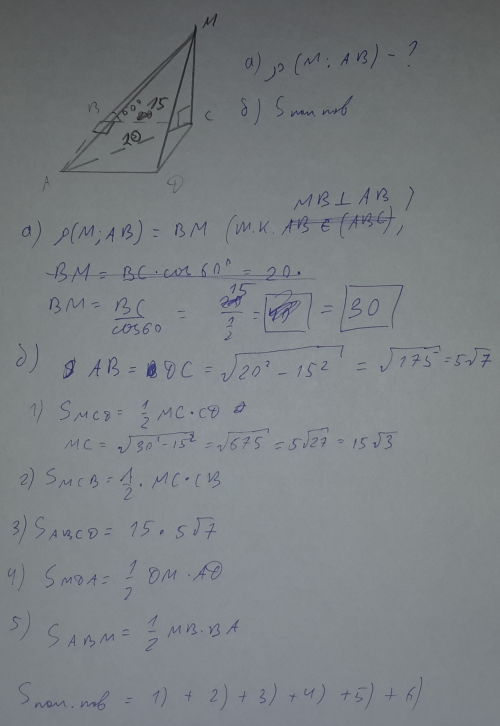 M
а) ρ (M; AB) - ?
B 60° 15 C
б) S пол.пов
20
A D
а) ρ(M; AB) = BM (т.к. MB⊥AB)
BM = BC·cos60° = 20·
BM = BC/cos60 = 15/(1/2) = 30
б) AB = DC = √(20² - 15²) = √175 = 5√7
1) S MCD = 1/2 MC·CD
MC = √(30² - 15²) = √675 = 5√27 = 15√3
2) S MCB = 1/2 · MC·CB
3) S ABCD = 15·5√7
4) S MDA = 1/2 DM·AD
5) S ABM = 1/2 MB·BA
S пол.пов = 1) + 2) + 3) + 4) + 5) + 6)